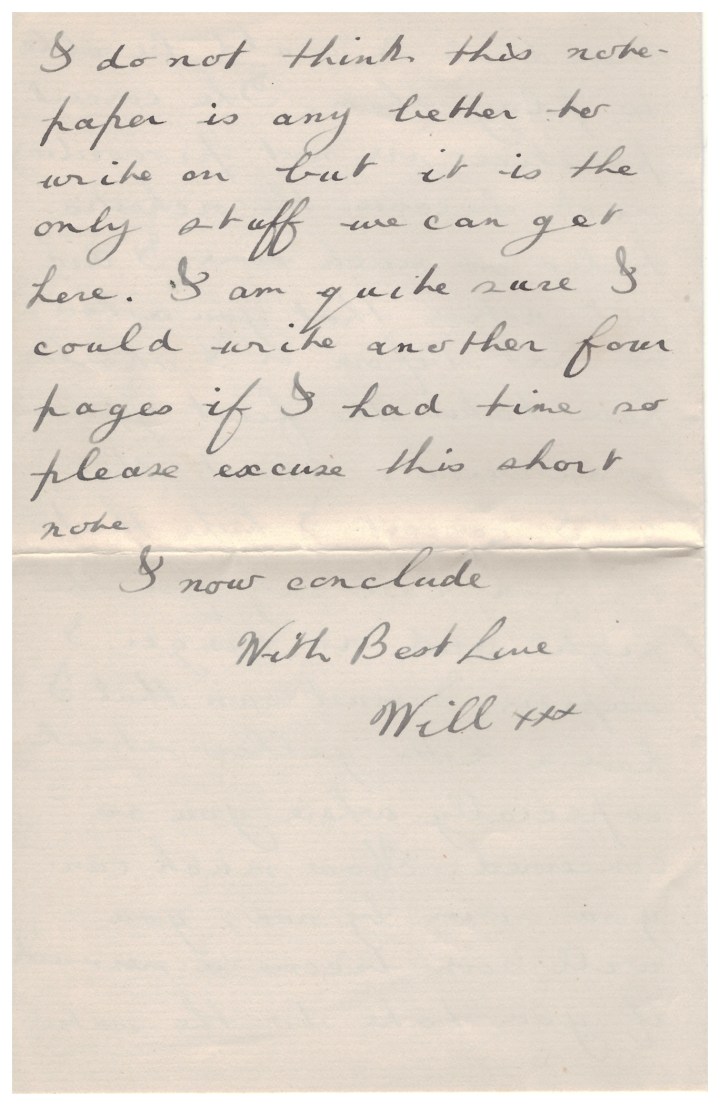 I do not think this note-
paper is any better to
write on but it is the
only stuff we can get
here. I am quite sure I
could write another four
pages if I had time so
please excuse this short
note
I now conclude
With Best Love
Will xxx